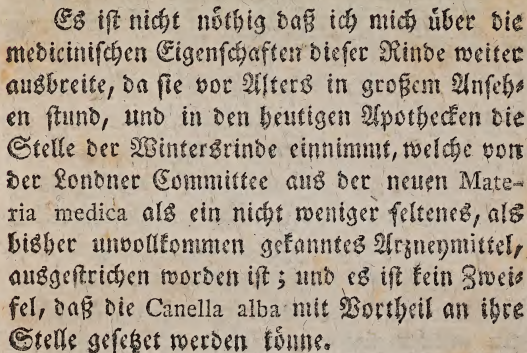 Es ist nicht nöthig daß ich mich über die
medicinischen Eigenschaften dieser Rinde weiter
ausbreite, da sie vor Alters in großem Anseh-
en stund, und in den heutigen Apothecken die
Stelle der Wintersrinde einnimmt, welche von
der Londner Committee aus der neuen Mate-
ria medica als ein nicht weniger seltenes, als
bisher unvollkommen gekanntes Arzneymittel,
ausgestrichen worden ist; und es ist kein Zwei-
fel, daß die Canella alba mit Vortheil an ihre
Stelle gesetzet werden könne.